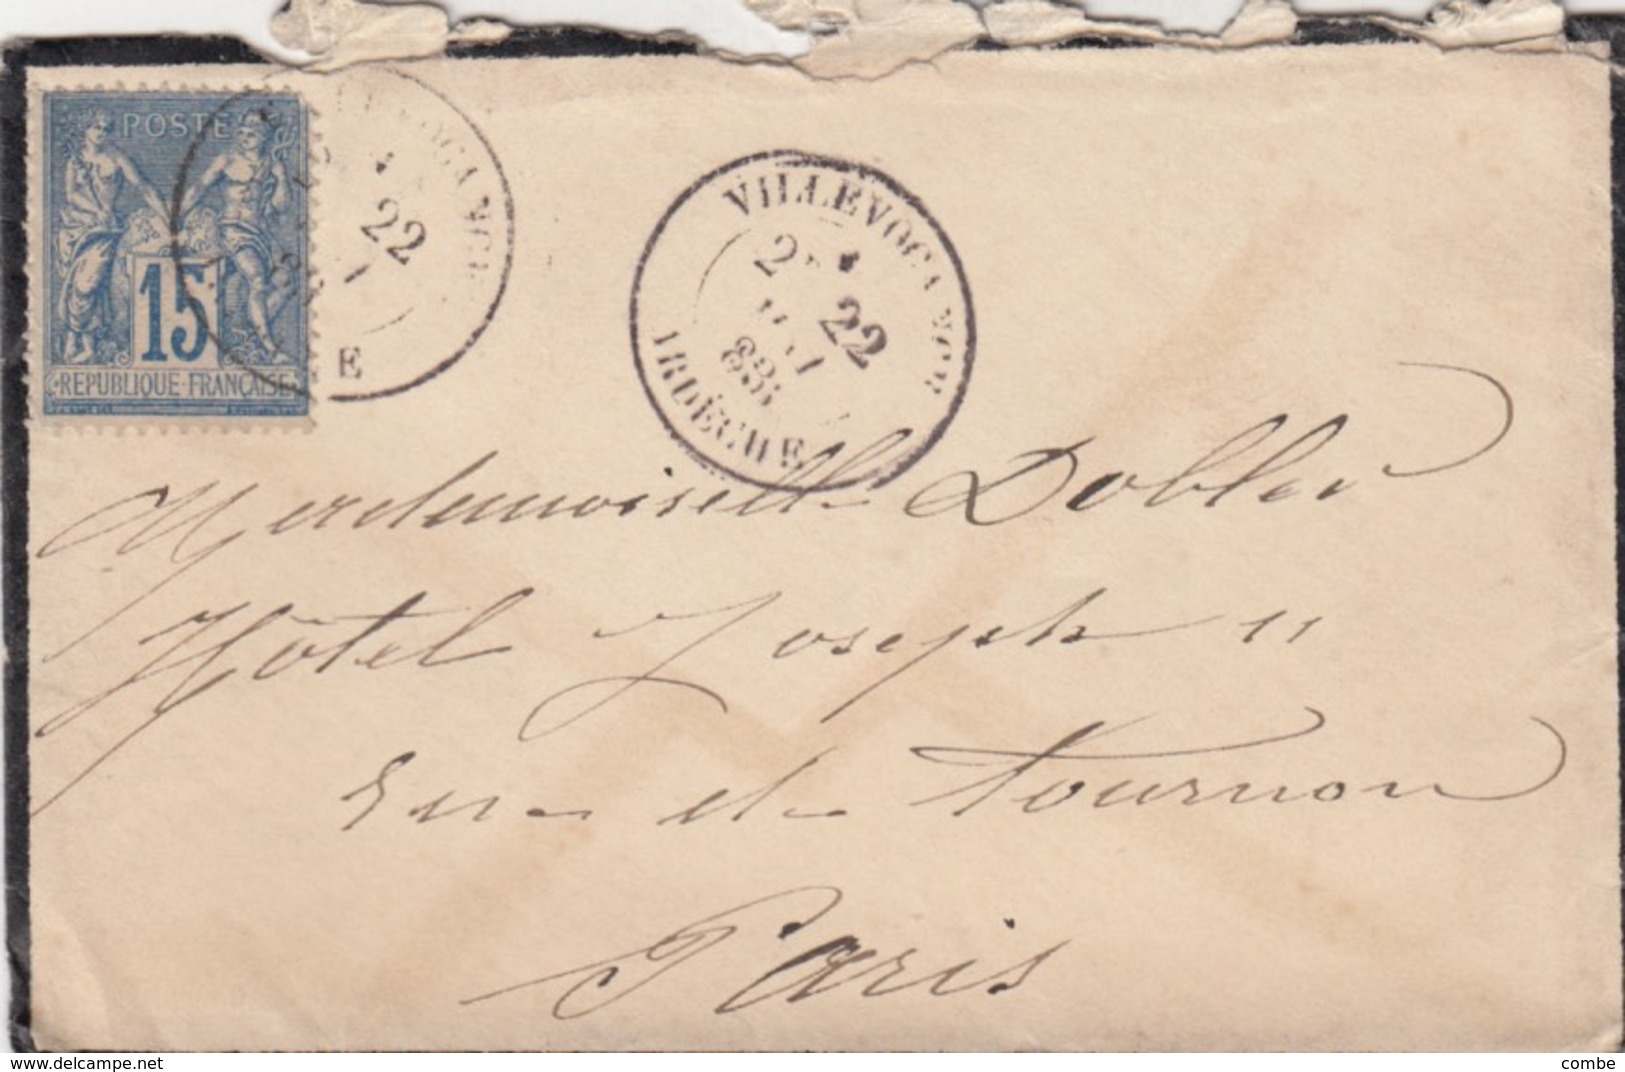 POSTE
15
REPUBLIQUE FRANÇAISE
22
E
VILLEVOCANCE
2E
22
MAI
83
ARDÈCHE
Mademoiselle Dobler
Hôtel Joseph II
rue de Tournon
Paris
www.delcampe.net
combe